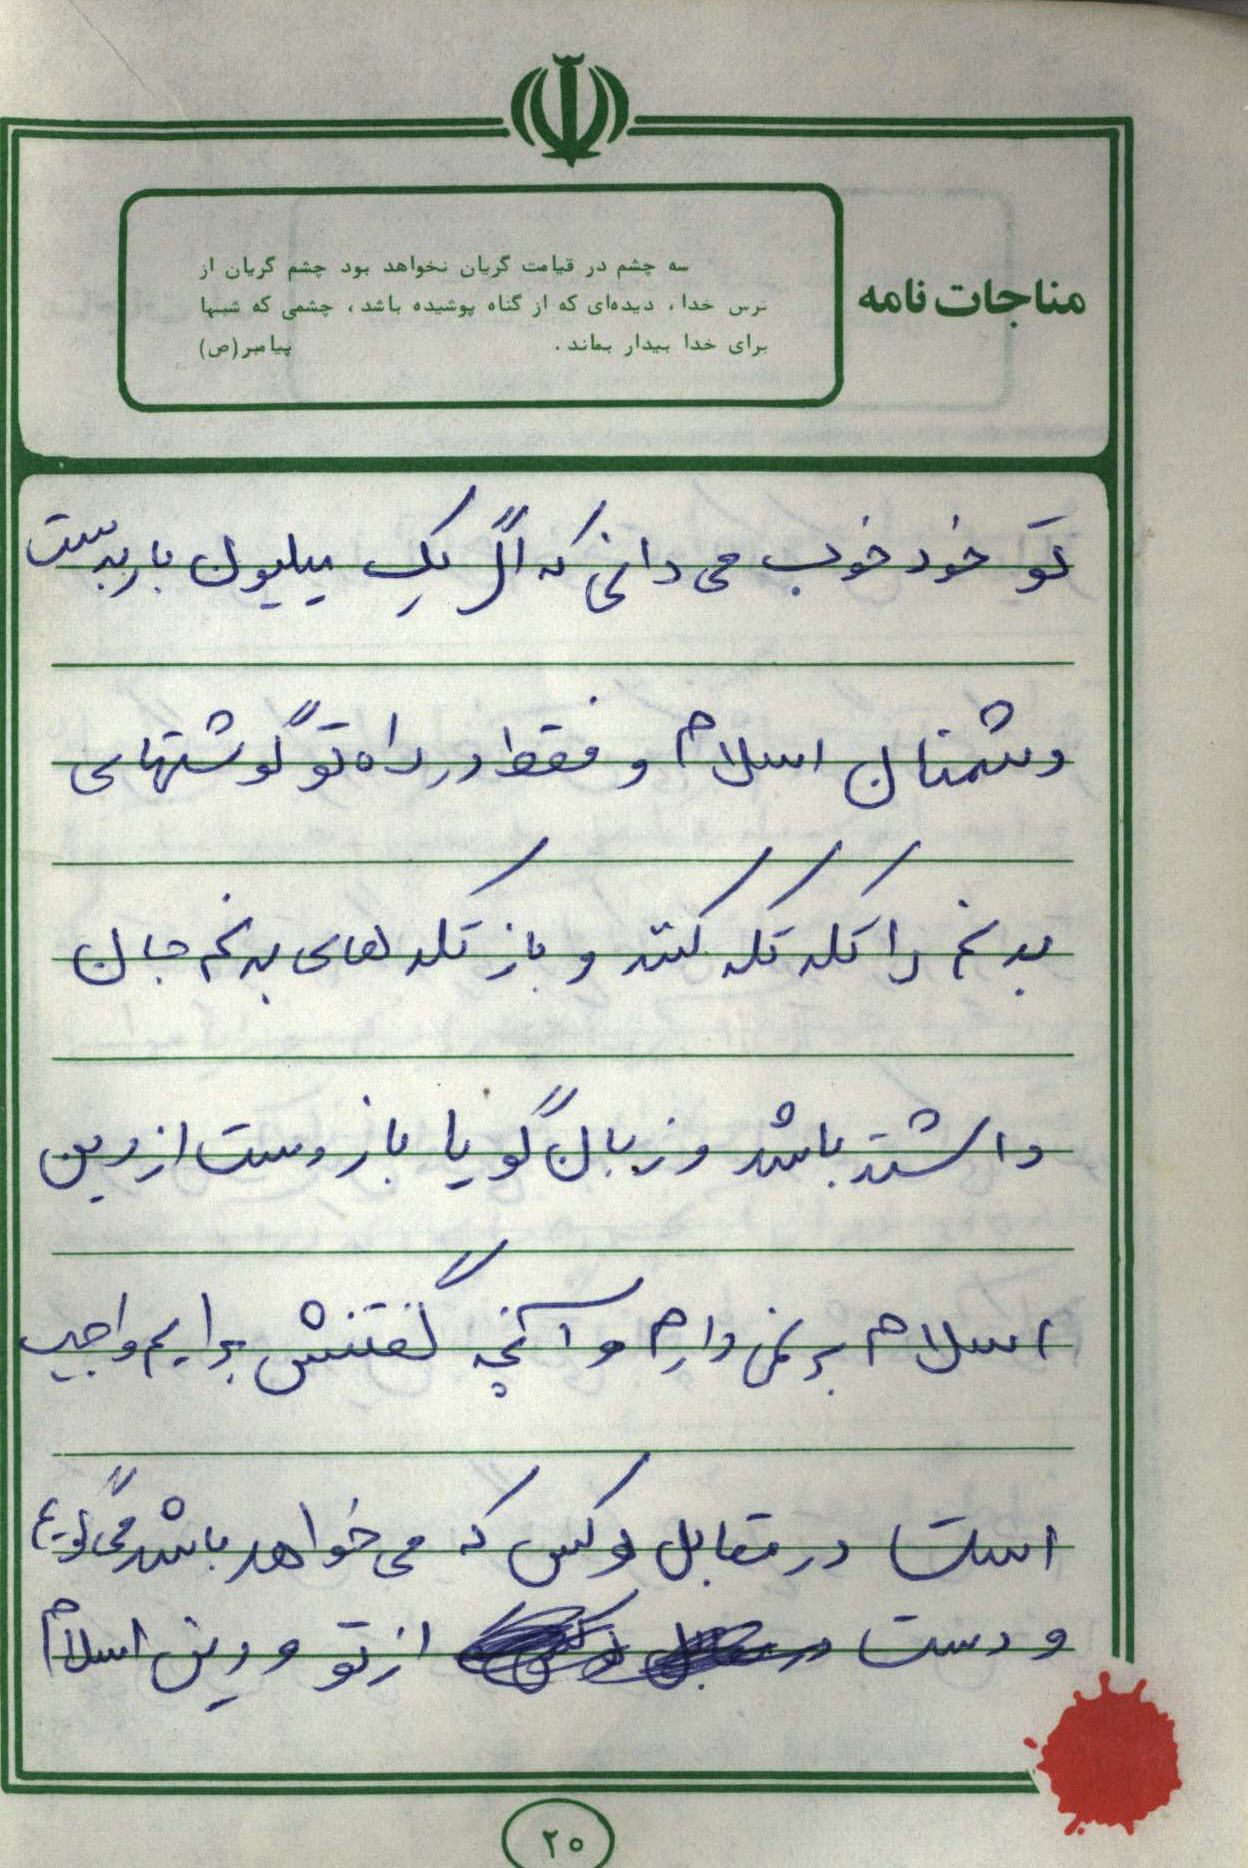 مناجات نامه
سه چشم در قیامت گریان نخواهد بود چشم گریان از
ترس خدا، دیده‌ای که از گناه پوشیده باشد، چشمی که شبها
برای خدا بیدار بماند. پیامبر(ص)
تو خود خوب می دانی که اگر یک میلیون بار بدست
دشمنان اسلام و فقط در راه تو گوشتهای
بدنم را تکه تکه کنند و باز تکه های بدنم جان
داشته باشد و زبان گویا باز دست از دین
اسلام بر نمی دارم و آنچه گفتنش برایم واجب
است در مقابل هر کس که می خواهد باشد می گویم
و دست از تو و دین اسلام
۲۰